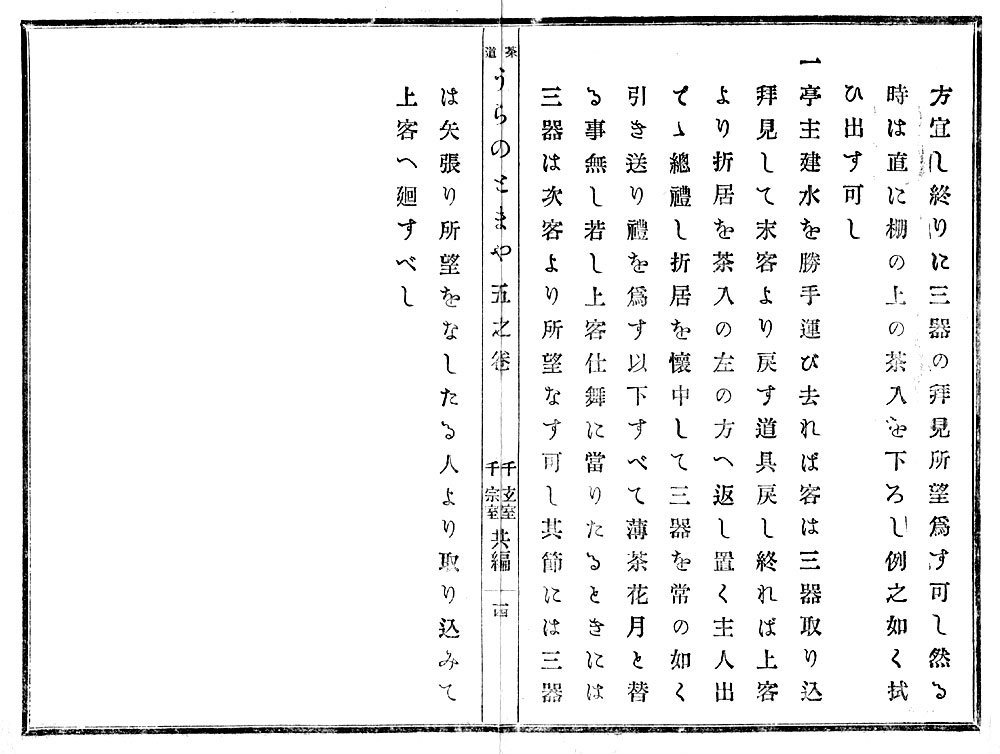 方宜し終りに三器の拜見所望爲す可し然る
時は直に棚の上の茶入を下ろし例之如く拭
ひ出す可し
一亭主建水を勝手運び去れば客は三器取り込
拜見して末客より戻す道具戻し終れば上客
より折居を茶入の左の方へ返し置く主人出
てゝ總禮し折居を懷中して三器を常の如く
引き送り禮を爲す以下すべて薄茶花月と替
る事無し若し上客仕舞に當りたるときには
三器は次客より所望なす可し其節には三器
茶道
うらのとまや五之卷
千玄室
千宗室
共編
一四
は矢張り所望をなしたる人より取り込みて
上客へ廻すべし